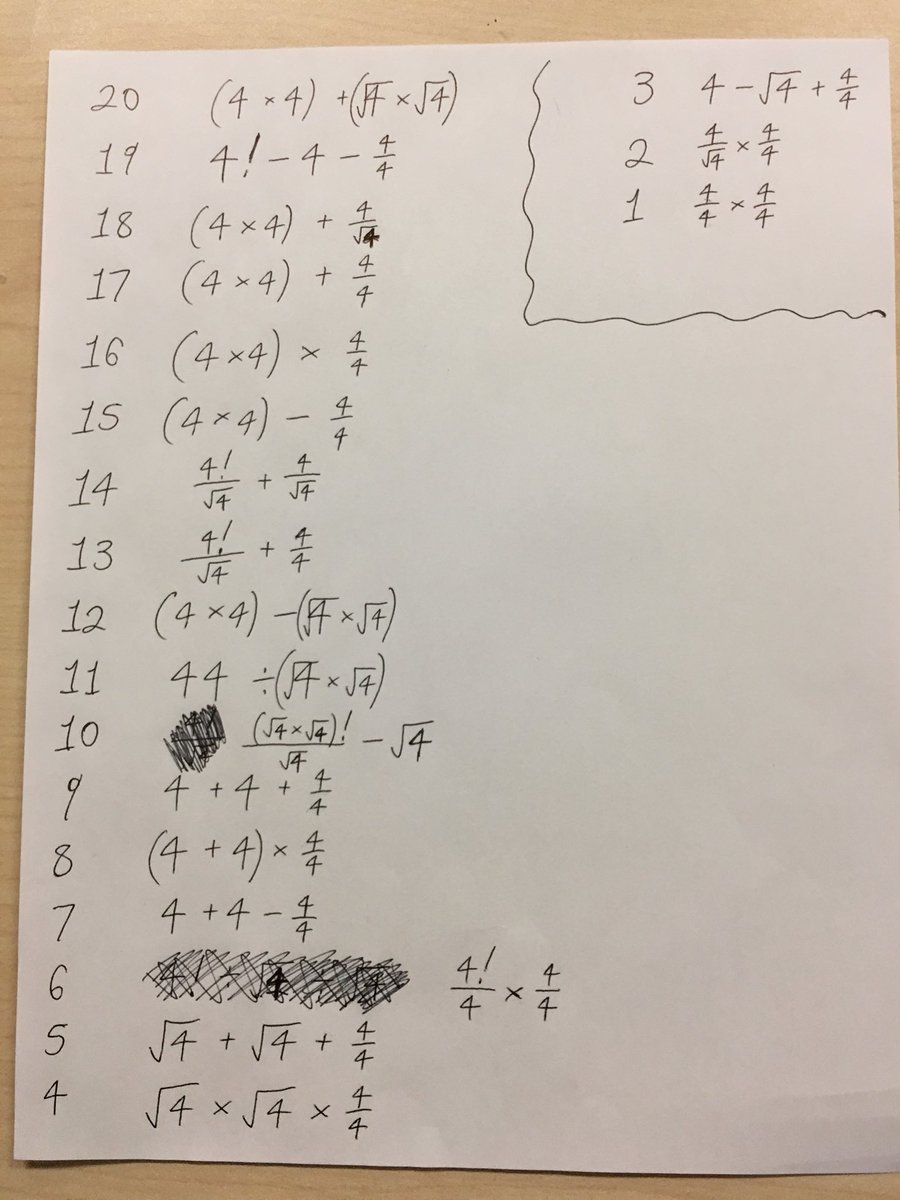 20 (4 × 4) + (√4 × √4)
19 4! − 4 − 4/4
18 (4 × 4) + 4/√4
17 (4 × 4) + 4/4
16 (4 × 4) × 4/4
15 (4 × 4) − 4/4
14 4!/√4 + 4/√4
13 4!/√4 + 4/4
12 (4 × 4) − (√4 × √4)
11 44 ÷ (√4 × √4)
10 (√4 × √4)!/√4 − √4
9 4 + 4 + 4/4
8 (4 + 4) × 4/4
7 4 + 4 − 4/4
6 4!/4 × 4/4
5 √4 + √4 + 4/4
4 √4 × √4 × 4/4
3 4 − √4 + 4/4
2 4/√4 × 4/4
1 4/4 × 4/4